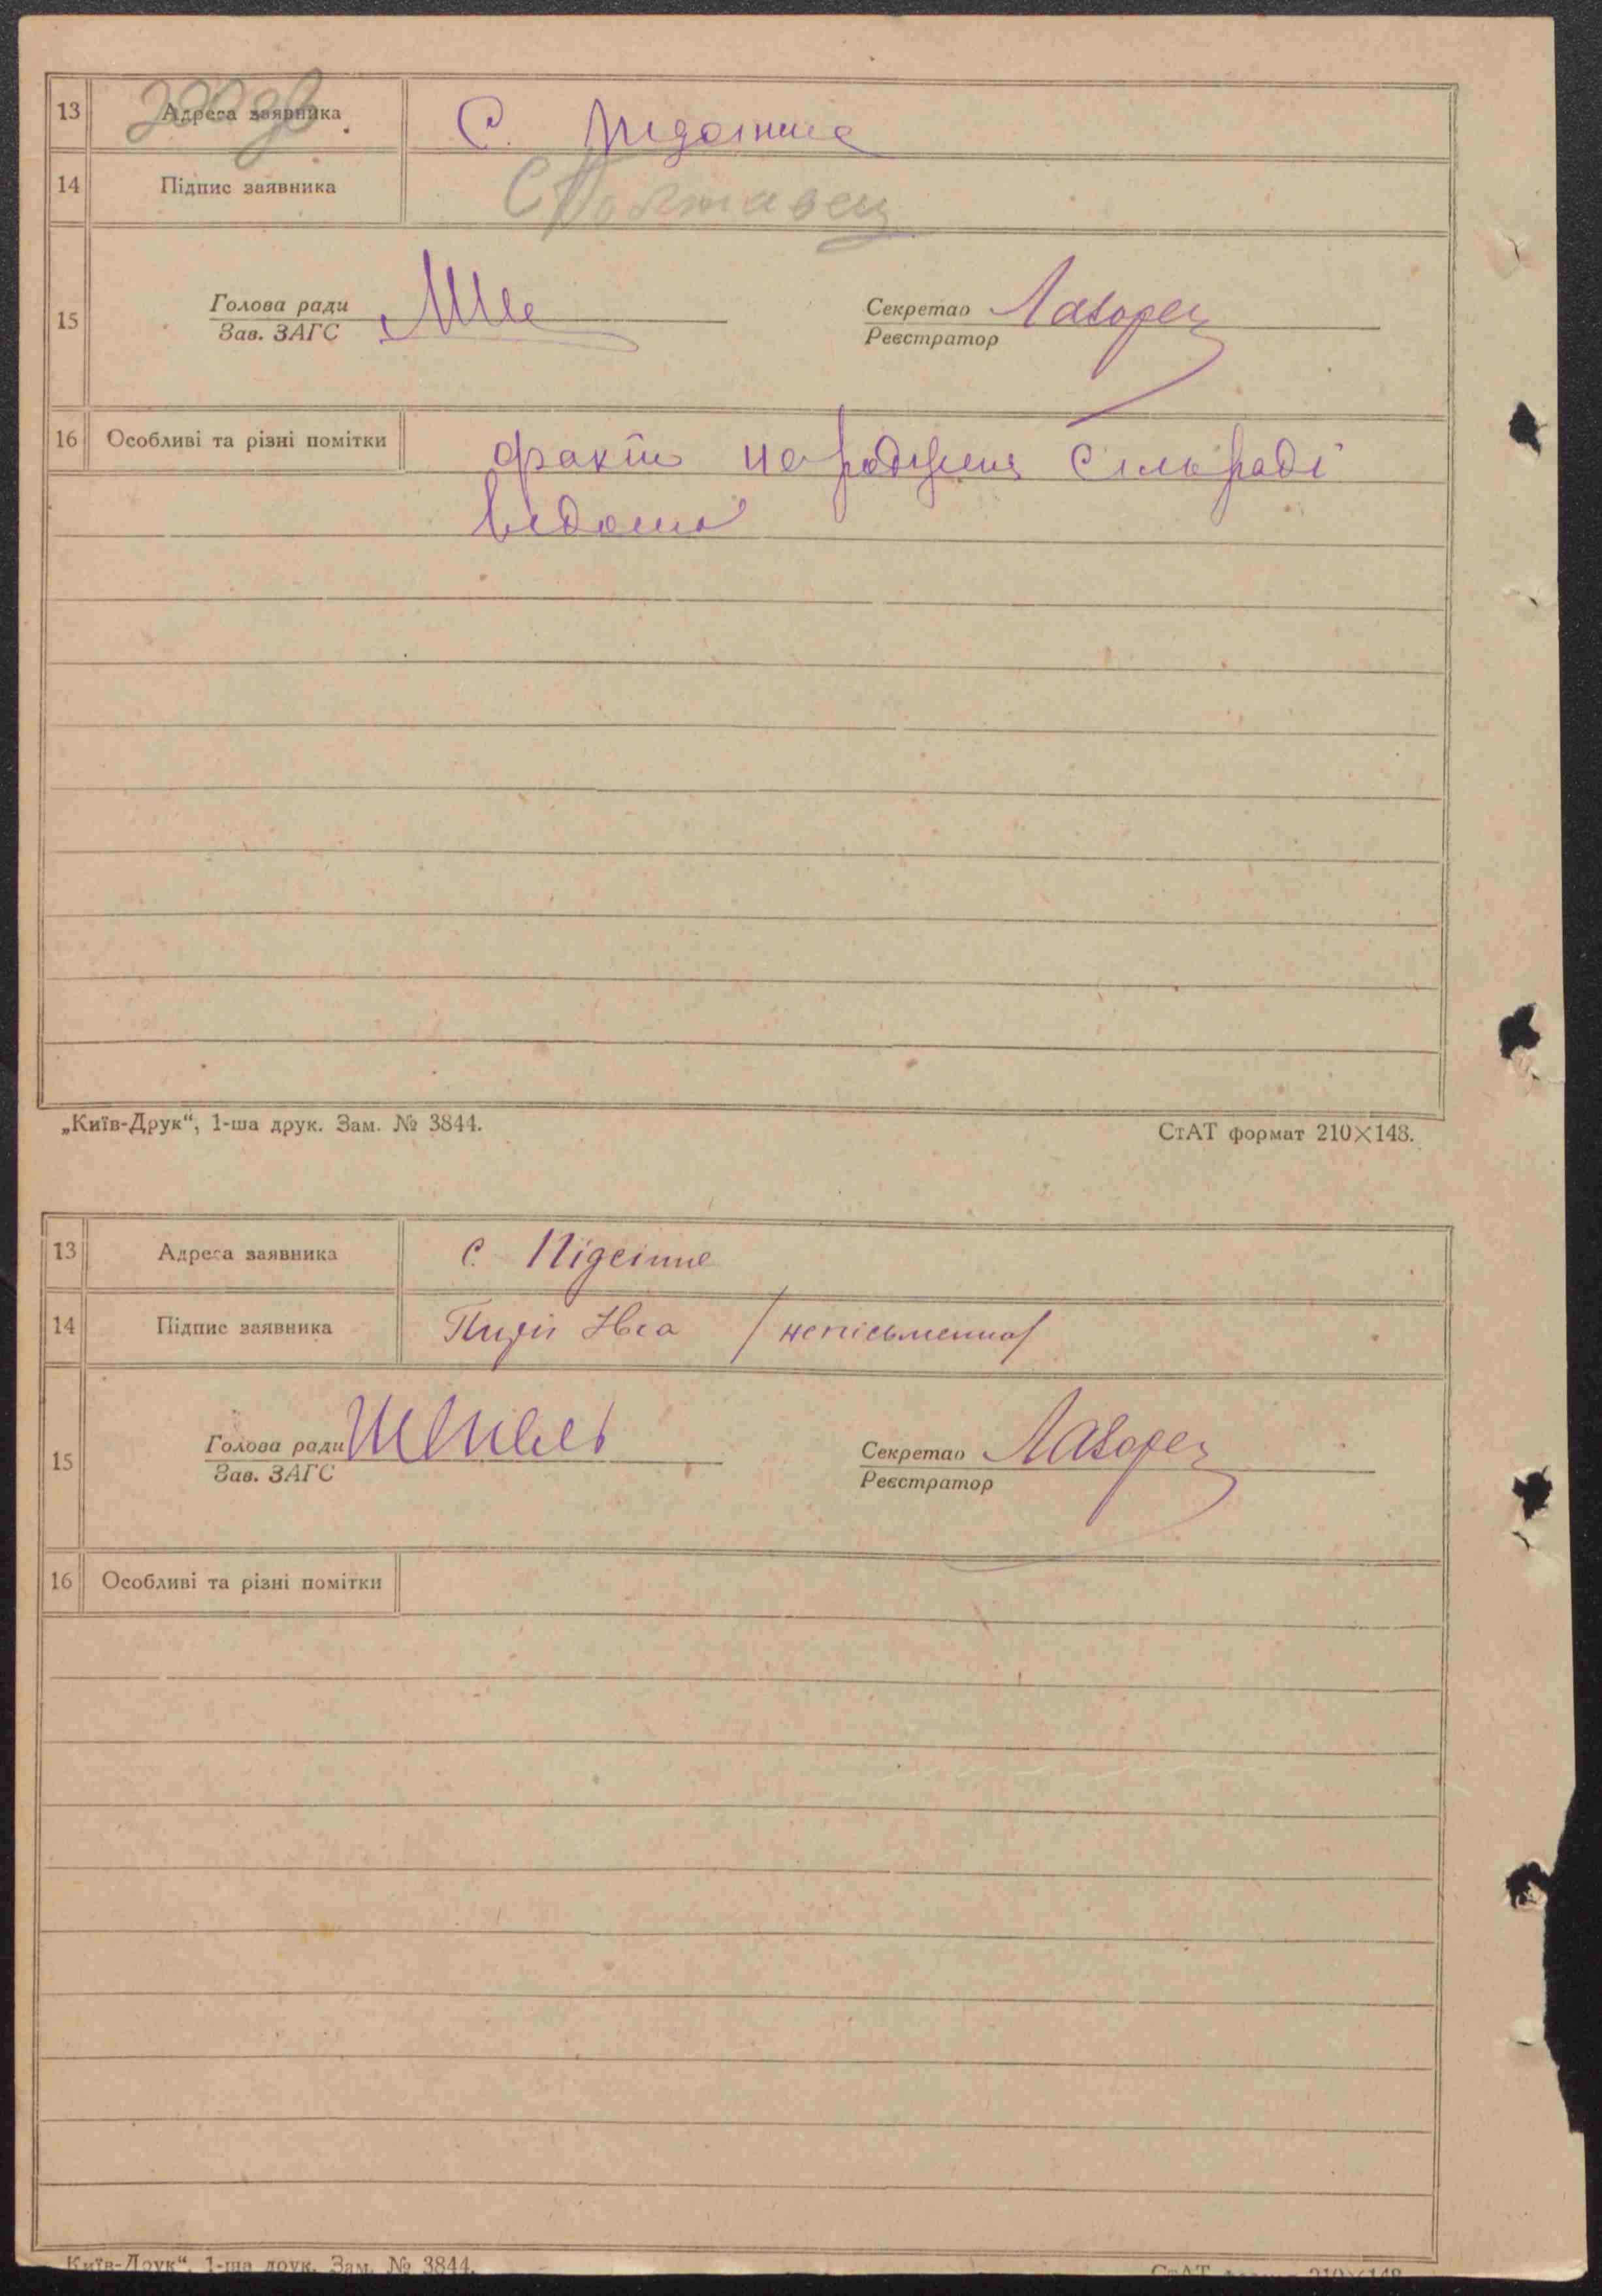 13 Адреса заявника С.
14 Підпис заявника С Полтавец
Голова ради Секретар Лазорец
15
Зав. ЗАГС Реєстратор
16 Особливі та різні помітки факт народження сільраді
відомо
„Київ-Друк“, 1-ша друк. Зам. № 3844. СтАТ формат 210×148.
13 Адреса заявника с. Підсінне
14 Підпис заявника /неписьменна/
Голова ради Секретар Лазорец
15
Зав. ЗАГС Реєстратор
16 Особливі та різні помітки
„Київ-Друк“, 1-ша друк. Зам. № 3844. СтАТ формат 210×148.